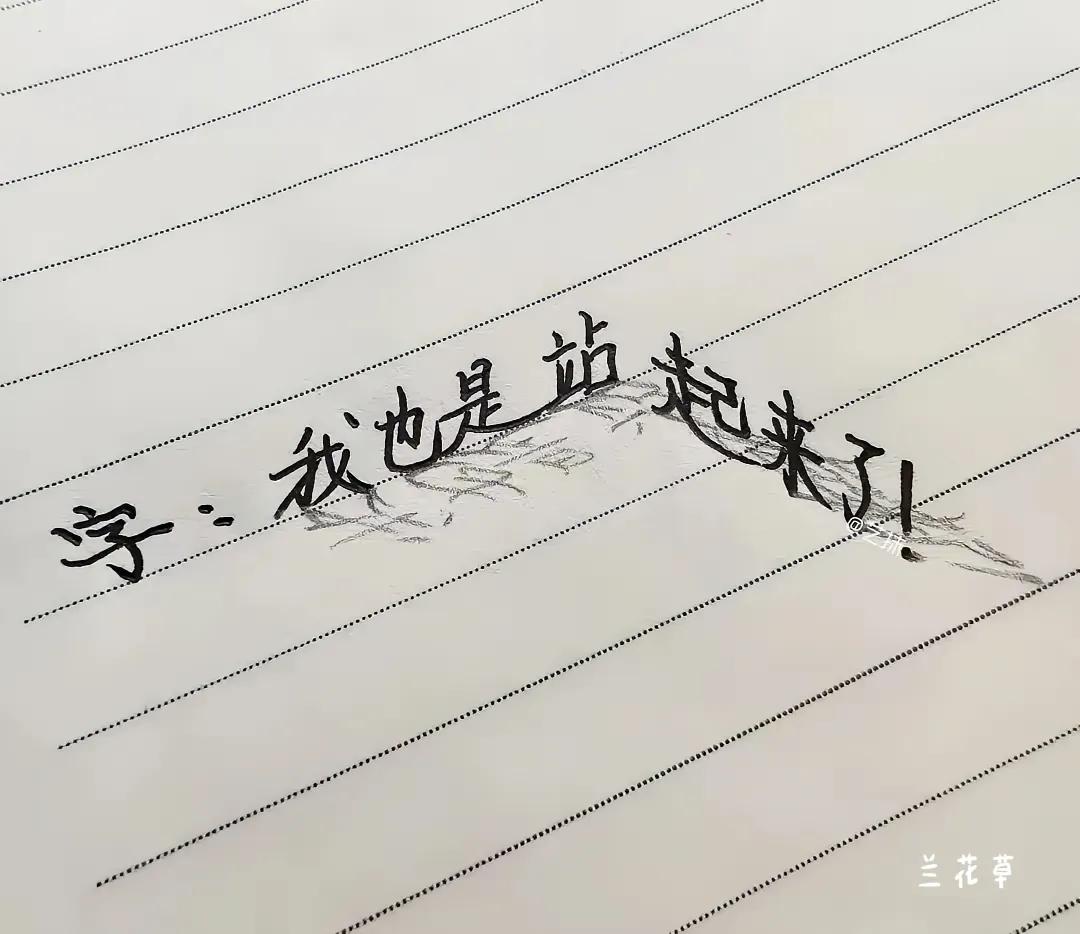 字：我也是站起来了！
兰花草